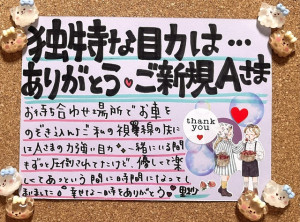 独特な目力は…
ありがとう♥ご新規Aさま
お待ち合わせ場所でお車を
のぞき込んで私の視線の先に
はAさまの力強い目力。一緒にいる間
もずっと圧倒されてたけど、優しくて楽
しくてあっという間にお時間になってし
まいました。幸せな一時をありがとう♥
thank
you